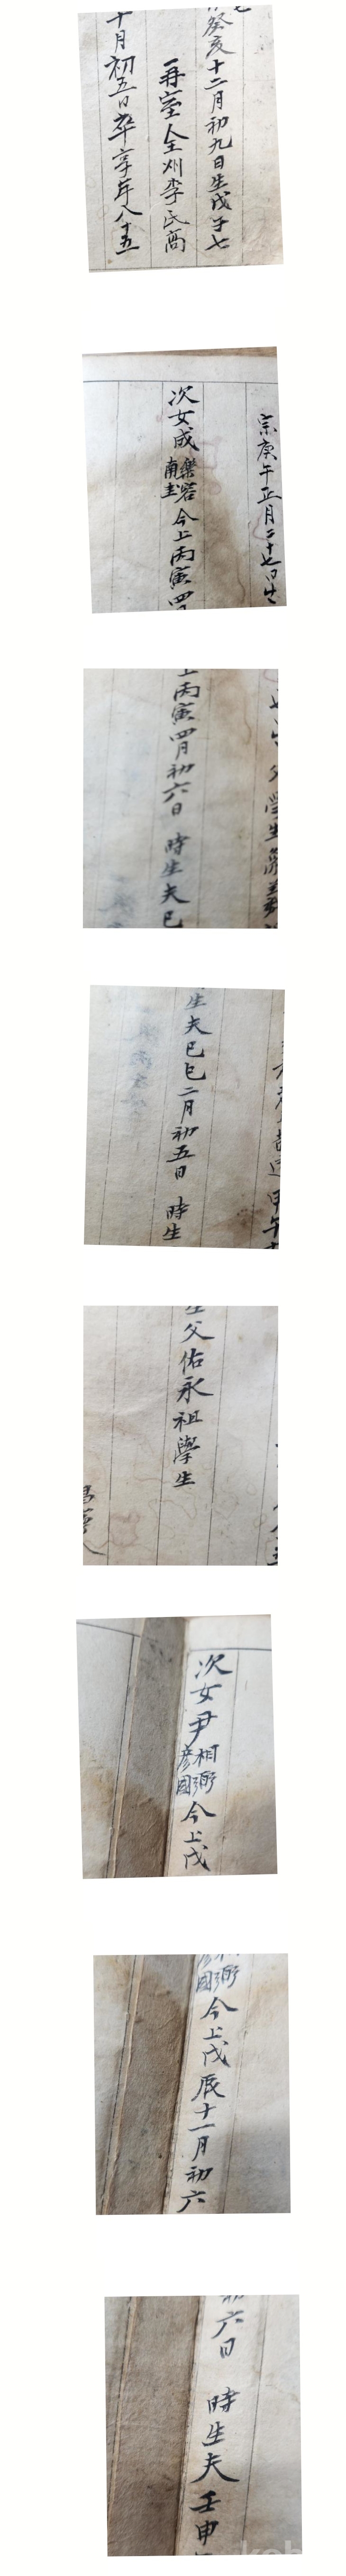 癸亥十二月初九日生戊子七
再室全州李氏高
十月初五日卒享年八十五
宗庚午正月二十七日生
次女成樂容南圭今上丙寅四
上丙寅四月初六日 時生夫己
生夫己巳二月初五日 時生
甲午
生父佑永祖學生
次女尹相弼彦國今上戊
國弼今上戊辰十一月初六
初六日 時生夫壬申